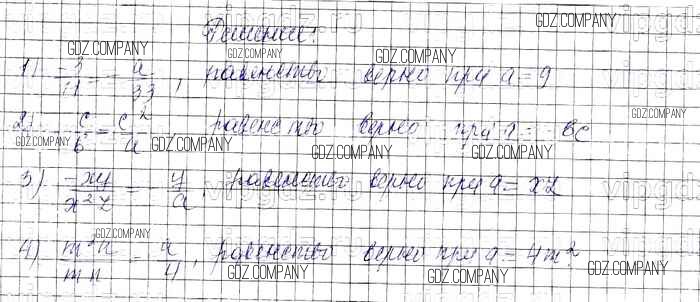 Решение:
1) -3/11 = -a/33, равенство верно при a = 9
2) -c/b = c²/a равенство верно при a = -bc
3) -xy/x²z = -y/a, равенство верно при a = xz
4) m³n/mn = a/4, равенство верно при a = 4m²
GDZ.COMPANY GDZ.COMPANY GDZ.COMPANY GDZ.COMPANY
GDZ.COMPANY GDZ.COMPANY GDZ.COMPANY GDZ.COMPANY GDZ.COMPANY
GDZ.COMPANY GDZ.COMPANY GDZ.COMPANY GDZ.COMPANY
vipgdz.ru